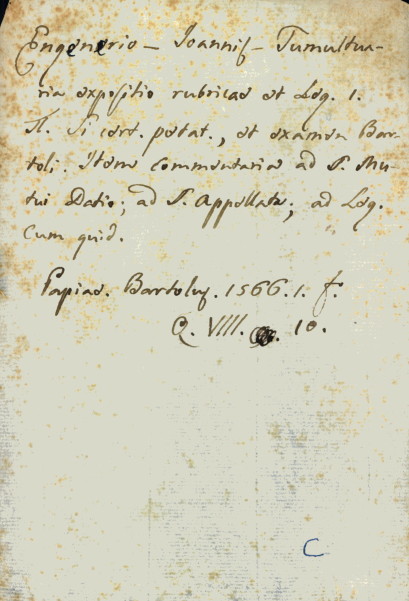 Engenerio - Ioannis - Tumultua-
ria expositio rubricae et Leg. 1.
ff. Si cert. petat., et examen Bar-
toli. Item commentaria ad §. Mu-
tui Datio; ad §. Appellata; ad Leg.
Cum quid.
Papiae. Bartolus. 1566. 1. f.
Q. VIII. 10.
C